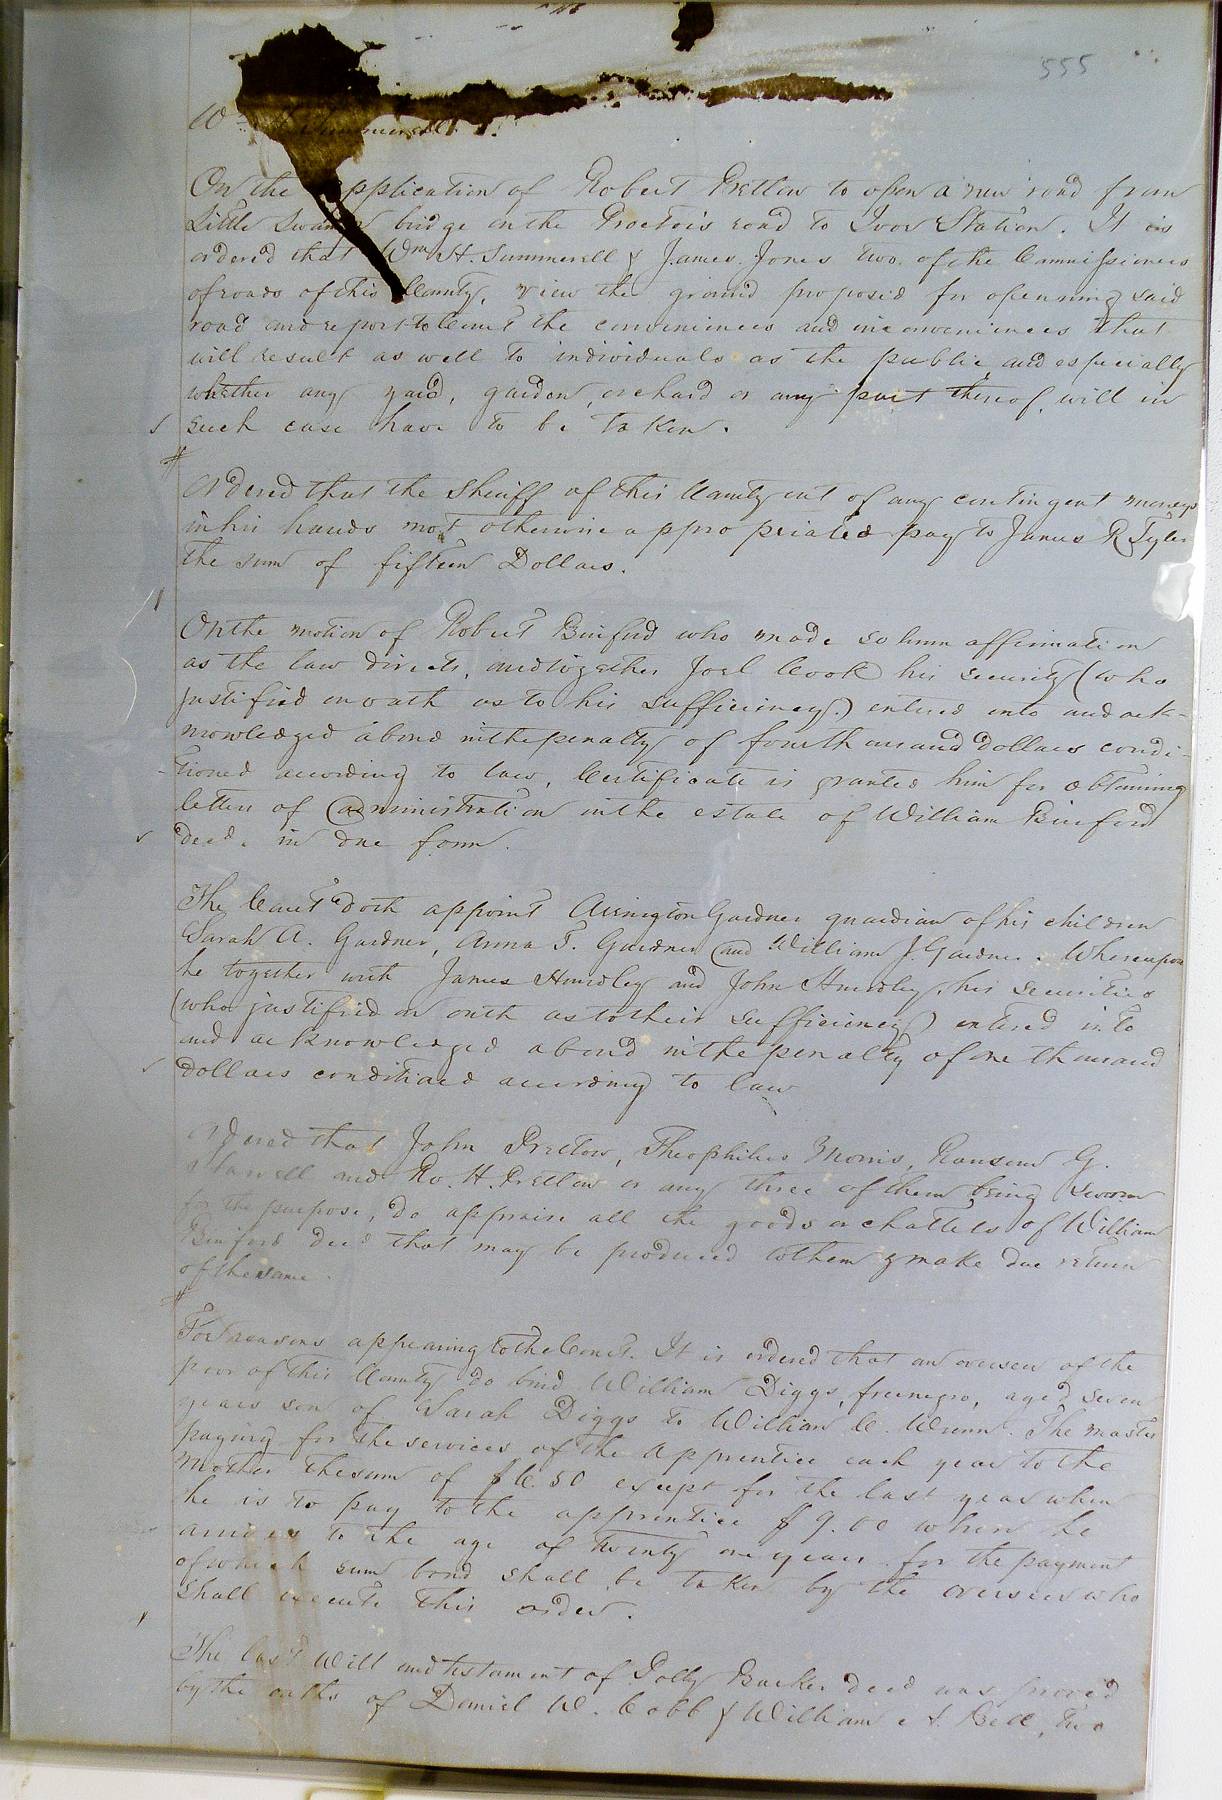 555
Wm H Summerell
On the application of Robert Pretlow to open a new road from
Little Swamp bridge in the Proctors road to Ivor Station. It is
ordered that Wm H. Summerell & James Jones two of the Commissioners
of roads of this County, view the ground proposed for openning said
road and report to Court the conveniences and inconveniences that
will result as well to individuals as the public, and especially
whether any yard, garden, orchard or any part thereof, will in
such case have to be taken.
Ordered that the Sheriff of this County out of any contingent moneys
in his hands not otherwise appropriated pay to James R Tyler
the sum of fifteen Dollars.
On the motion of Robert Binford who made solemn affirmation
as the law directs, and together Joel Cook his security (who
justified on oath as to his sufficiency) entered into and ack-
nowledged a bond in the penalty of four thousand dollars condi-
tioned according to law, Certificate is granted him for obtaining
letters of administration on the estate of William Binford
decd. in due form.
The Court doth appoint Arrington Gardner guardian of his children
Sarah A. Gardner, Anna T. Gardner and William J. Gardner. Whereupon
he together with James and John his securities
(who justified on oath as to their sufficiency) entered into
and acknowledged a bond in the penalty of one thousand
dollars conditioned according to law
Ordered that John Pretlow, Theophilus Morris, Ransom G.
and Ro. H. Pretlow or any three of them being sworn
for the purpose, do appraise all the goods or chattels of William
Binford decd that may be produced to them & make due return
of the same.
For reasons appearing to the Court. It is ordered that an overseer of the
poor of this County do bind William Diggs, free negro, aged seven
years son of Sarah Diggs to William C. Wrenn. The master
paying for the services of the apprentice each year to the
Mother the sum of $6.50 except for the last year when
he is to pay to the apprentice $9.00 when he
arrives to the age of twenty one years for the payment
of which sum bond shall be taken by the overseer who
shall execute this order.
The last Will and testament of Polly Barker decd was proved
by the oaths of Daniel W. Cobb & William S. Bell, two